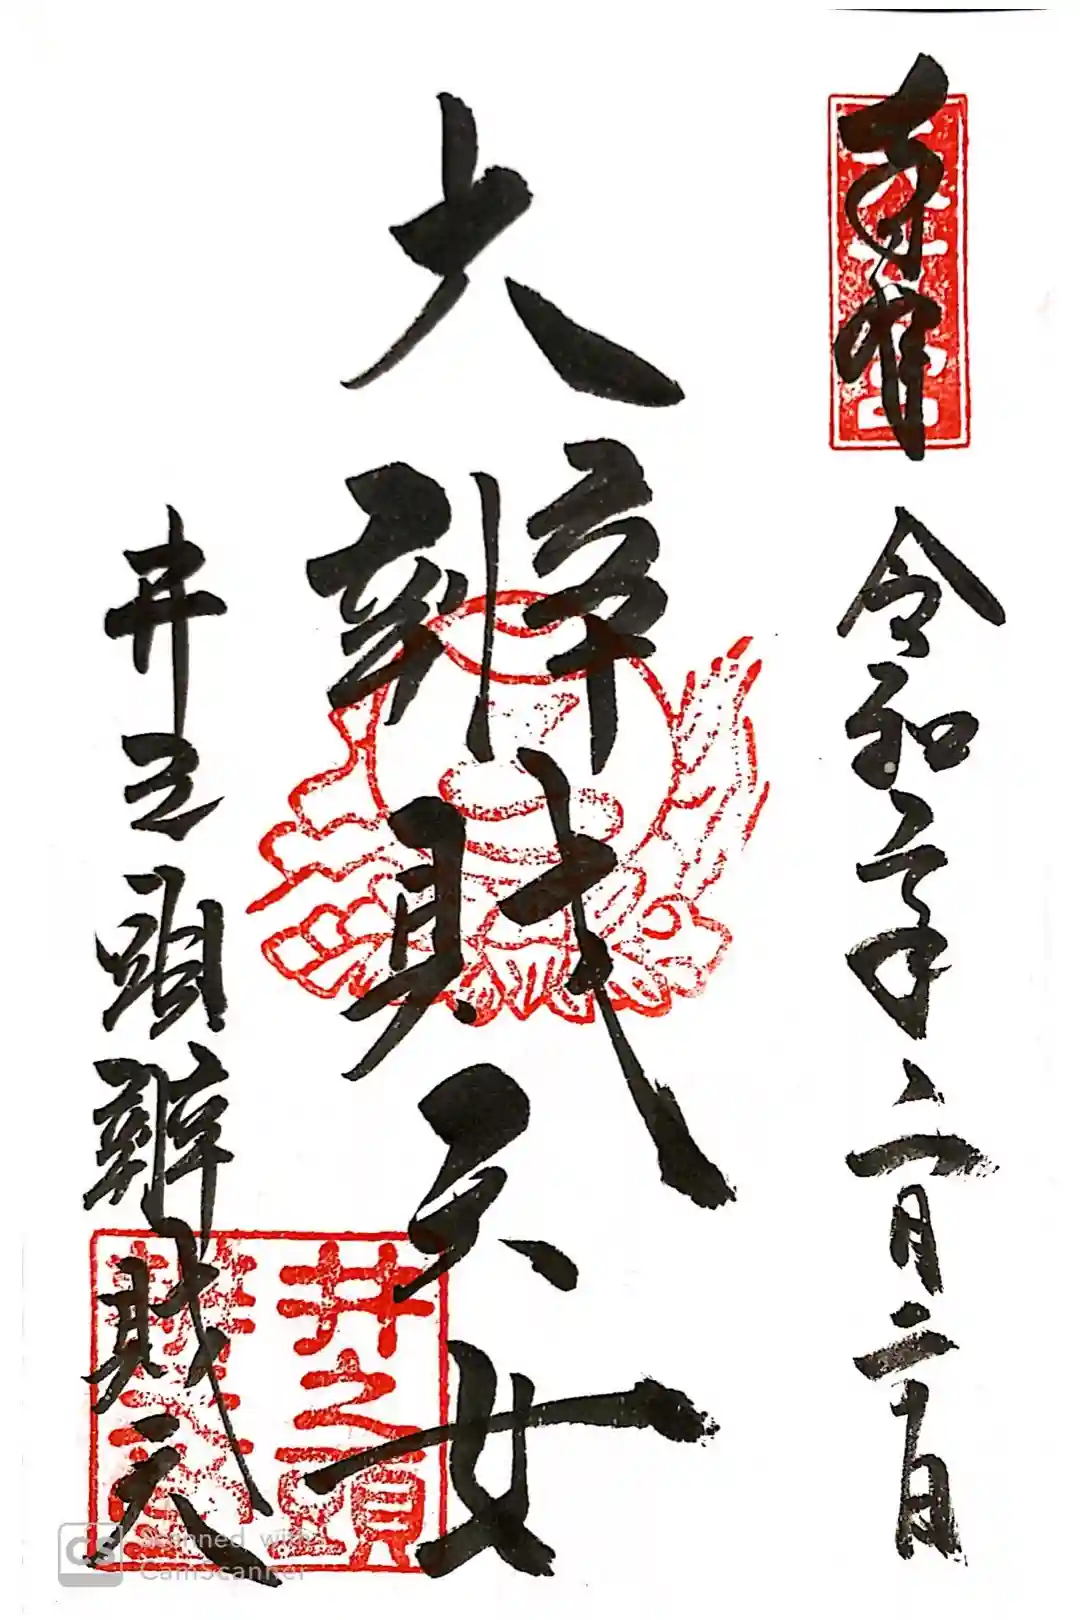 奉拝
令和六年二月二十日
大辨財天女
井之頭辨財天
井之頭
辨財天
CS Scanned with
CamScanner